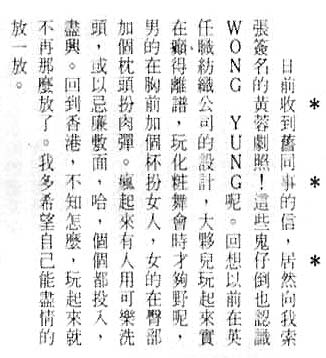 * * *
日前收到舊同事的信，居然向我索
張簽名的黃蓉劇照！這些鬼仔倒也認識
WONG YUNG呢。回想以前在英
任職紡織公司的設計，大夥兒玩起來實
在癲得離譜，玩化粧舞會時才夠野呢，
男的在胸前加個杯扮女人，女的在臀部
加個枕頭扮肉彈。瘋起來有人用可樂洗
頭，或以忌廉敷面，哈，個個都投入，
盡興。回到香港，不知怎麼，玩起來就
不再那麼放了。我多希望自己能盡情的
放一放。